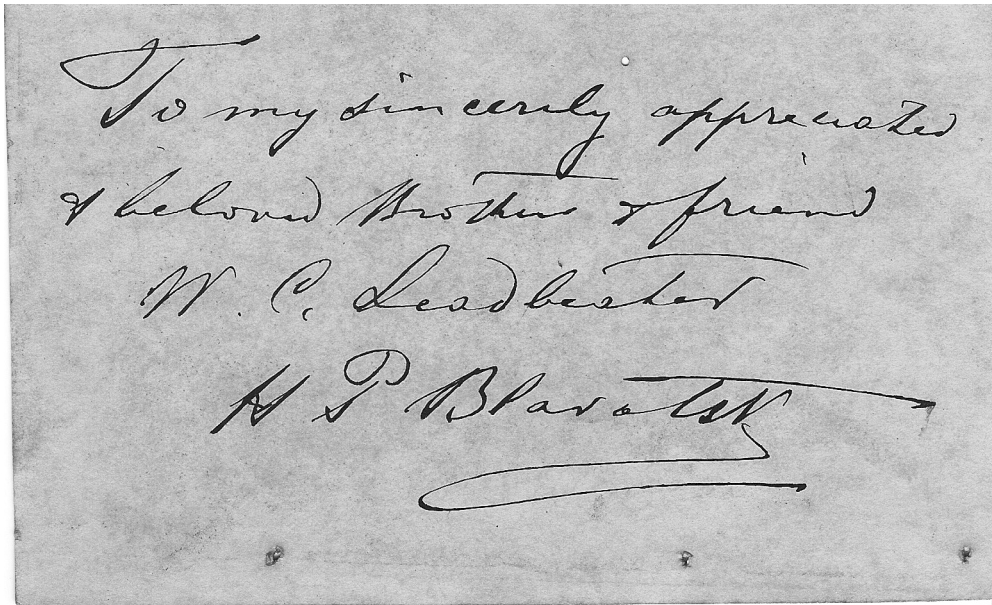 To my sincerely appreciated
& beloved Brother & friend
W. C. Leadbeater
H P Blavatsky